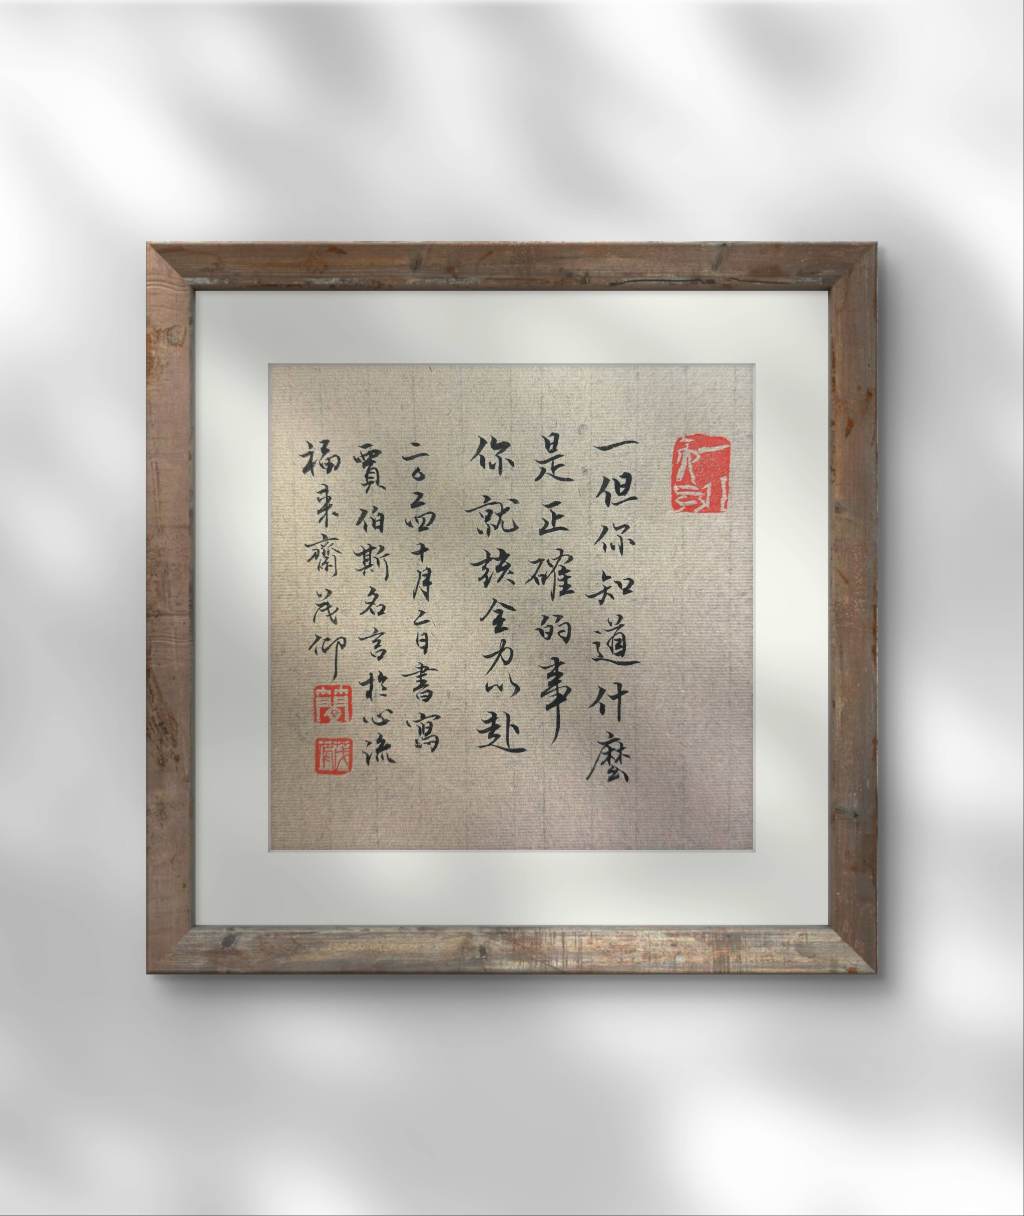 一但你知道什麼
是正確的事
你就該全力以赴
二〇二四十月二日書寫
賈伯斯名言於心流
福来齋茂仰